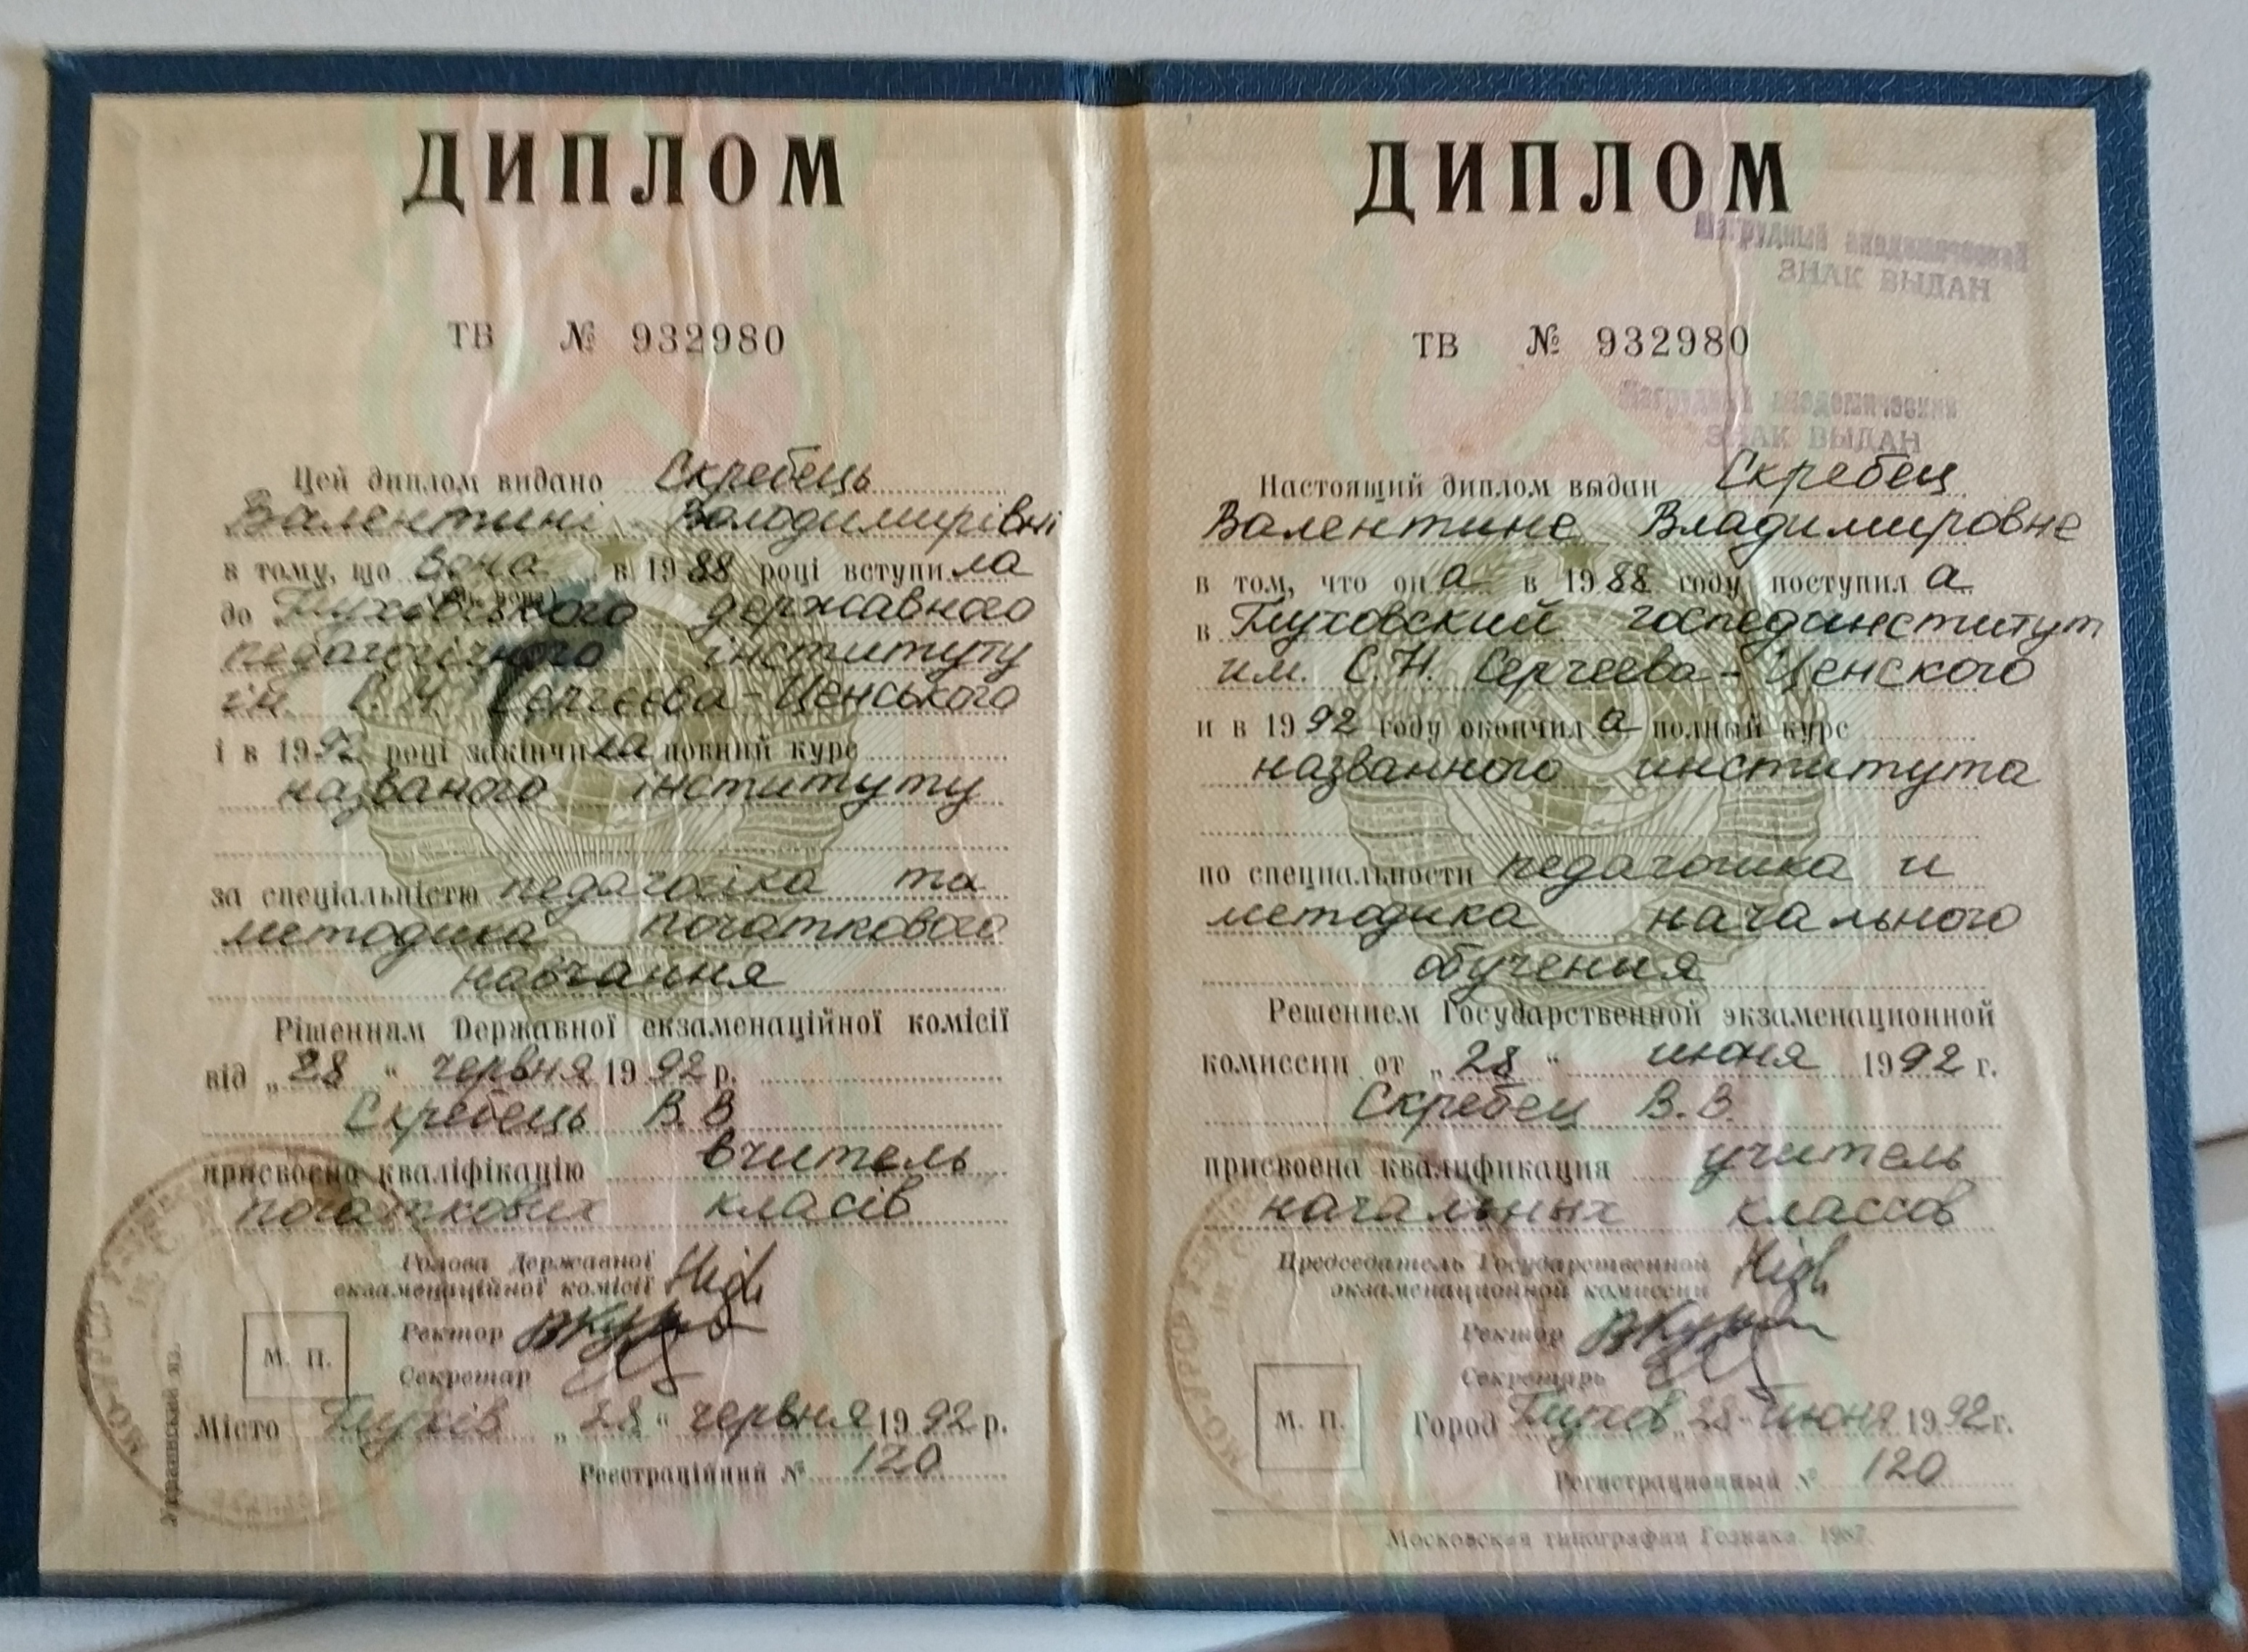 ДИПЛОМ
ТВ № 932980
Цей диплом видано Скребець
Валентині Володимирівні
в тому, що вона в 1988 році вступила
до Глухівського державного
педагогічного інституту
ім. С.М. Сергєєва-Ценського
і в 1992 році закінчила повний курс
названого інституту
за спеціальністю педагогіка та
методика початкового
навчання
Рішенням Державної екзаменаційної комісії
від „28“ червня 1992 р.
Скребець В.В.
присвоєно кваліфікацію вчитель
початкових класів
Голова Державної
екзаменаційної комісії
Ректор
Секретар
М. П.
Місто Глухів „28“ червня 1992 р.
Реєстраційний № 120
Украинский яз.
ДИПЛОМ
ЗНАК ВЫДАН
ТВ № 932980
ЗНАК ВЫДАН
Настоящий диплом выдан Скребец
Валентине Владимировне
в том, что она в 1988 году поступила
в Глуховский госпединститут
им. С.Н. Сергеева-Ценского
и в 1992 году окончила полный курс
названного института
по специальности педагогика и
методика начального
обучения
Решением Государственной экзаменационной
комиссии от „28“ июня 1992 г.
Скребец В.В.
присвоена квалификация учитель
начальных классов
Председатель Государственной
экзаменационной комиссии
Ректор
Секретарь
М. П.
Город Глухов „28“ июня 1992 г.
Регистрационный № 120
Московская типография Гознака. 1987.